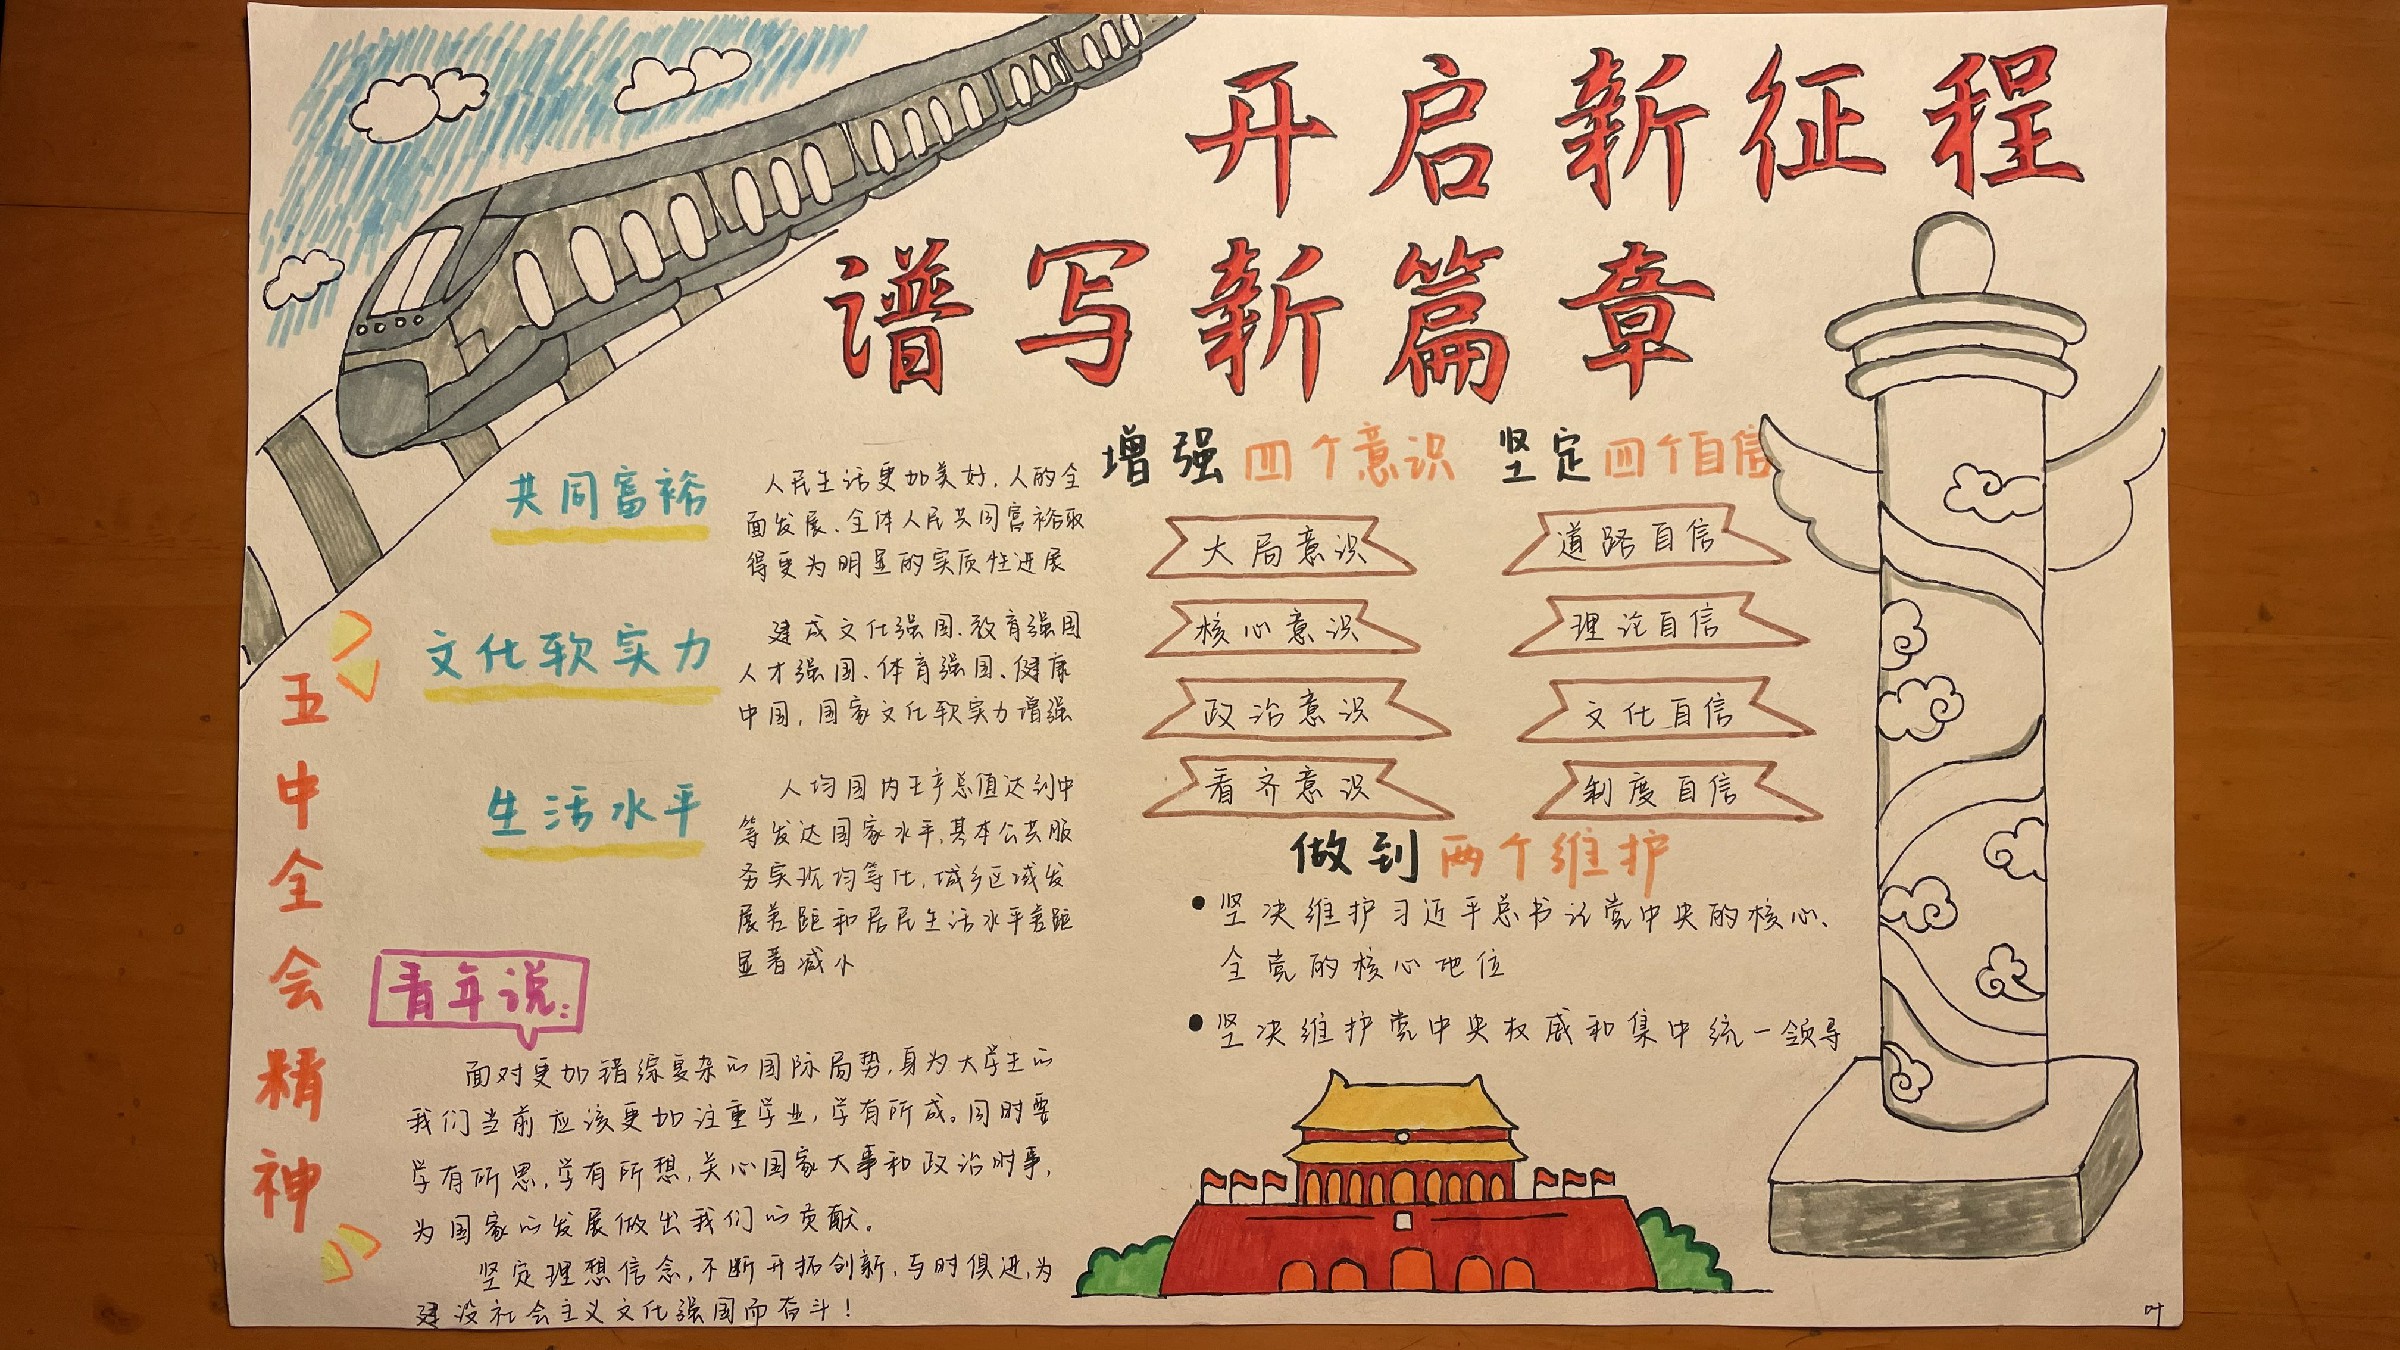 开启新征程
谱写新篇章
共同富裕
人民生活更加美好,人的全
面发展、全体人民共同富裕取
得更为明显的实质性进展
文化软实力
建成文化强国、教育强国
人才强国、体育强国、健康
中国,国家文化软实力增强
生活水平
人均国内生产总值达到中
等发达国家水平,基本公共服
务实现均等化,城乡区域发
展差距和居民生活水平差距
显著减小
五中全会精神
青年说:
面对更加错综复杂的国际局势,身为大学生的
我们当前应该更加注重学业,学有所成。同时要
学有所思,学有所想,关心国家大事和政治时事,
为国家的发展做出我们的贡献。
坚定理想信念,不断开拓创新,与时俱进,为
建设社会主义文化强国而奋斗!
增强四个意识
大局意识
核心意识
政治意识
看齐意识
坚定四个自信
道路自信
理论自信
文化自信
制度自信
做到两个维护
•坚决维护习近平总书记党中央的核心、
全党的核心地位
•坚决维护党中央权威和集中统一领导
叶